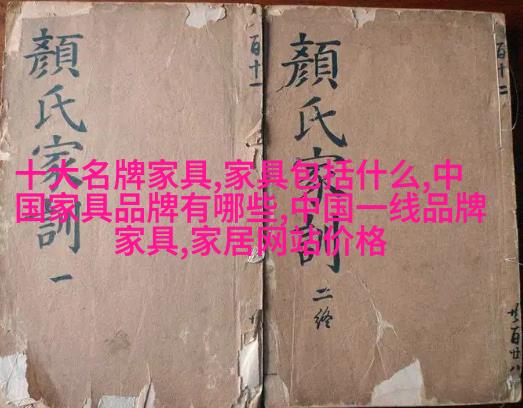 顔氏家訓 一
顔氏家訓 二終
百十一
百十二
十大名牌家具,家具包括什么,中
国家具品牌有哪些,中国一线品牌
家具,家居网站价格